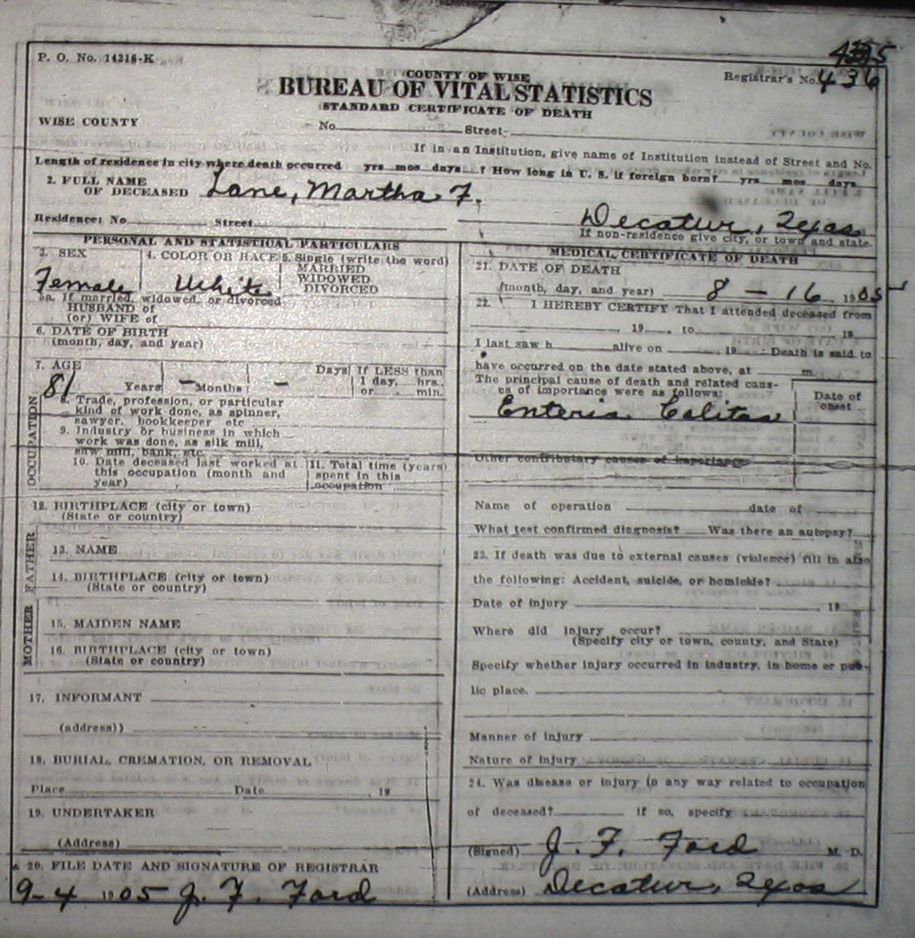 P. O. No. 14316-K
COUNTY OF WISE
BUREAU OF VITAL STATISTICS
STANDARD CERTIFICATE OF DEATH
Registrar's No. 436
WISE COUNTY
No. Street
If in an Institution, give name of Institution instead of Street and No.
Length of residence in city where death occurred yrs mos days ? How long in U. S. if foreign born? yrs mos days
2. FULL NAME OF DECEASED Lane, Martha F.
Residence: No Street Decatur, Texas
If non-residence give city, or town and state.
PERSONAL AND STATISTICAL PARTICULARS
3. SEX
4. COLOR OR RACE
5. Single (write the word)
MARRIED
WIDOWED
DIVORCED
Female White
5a. If married, widowed, or divorced
HUSBAND of
(or) WIFE of
6. DATE OF BIRTH
(month, day, and year)
7. AGE
81 Years - Months - Days
If LESS than
1 day, hrs.
or min.
OCCUPATION
Trade, profession, or particular
kind of work done, as spinner,
sawyer, bookkeeper etc
9. Industry or business in which
work was done, as silk mill,
saw mill, bank, etc.
10. Date deceased last worked at
this occupation (month and
year)
11. Total time (years)
spent in this
occupation
12. BIRTHPLACE (city or town)
(State or country)
FATHER
13. NAME
14. BIRTHPLACE (city or town)
(State or country)
MOTHER
15. MAIDEN NAME
16. BIRTHPLACE (city or town)
(State or country)
17. INFORMANT
(address))
18. BURIAL, CREMATION, OR REMOVAL
Place Date 19
19. UNDERTAKER
(Address)
20. FILE DATE AND SIGNATURE OF REGISTRAR
9-4 1905 J. F. Ford
MEDICAL CERTIFICATE OF DEATH
21. DATE OF DEATH
(month, day, and year) 8 - 16 1905
22. I HEREBY CERTIFY That I attended deceased from
19 to 19
I last saw h alive on 19 : Death is said to
have occurred on the date stated above, at m.
The principal cause of death and related caus-
es of importance were as follows:
Date of
onset
Enteria Colitas
Other contributory causes of importance
Name of operation date of
What test confirmed diagnosis? Was there an autopsy?
23. If death was due to external causes (violence) fill in also
the following: Accident, suicide, or homicide?
Date of injury 19
Where did injury occur?
(Specify city or town, county, and State)
Specify whether injury occurred in industry, in home or pub-
lic place.
Manner of injury
Nature of injury
24. Was disease or injury in any way related to occupation
of deceased? if so, specify
(Signed) J. F. Ford M. D.
(Address) Decatur, Texas